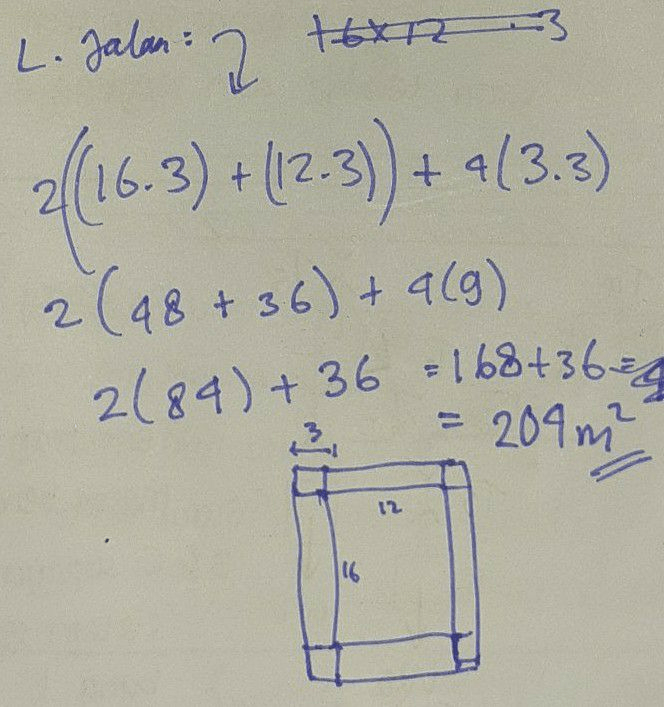 L. Jalan: 16 x 12 . 3
2((16.3) + (12.3)) + 4(3.3)
2(48 + 36) + 4(9)
2(84) + 36 = 168 + 36 =
= 204 m²
3
12
16